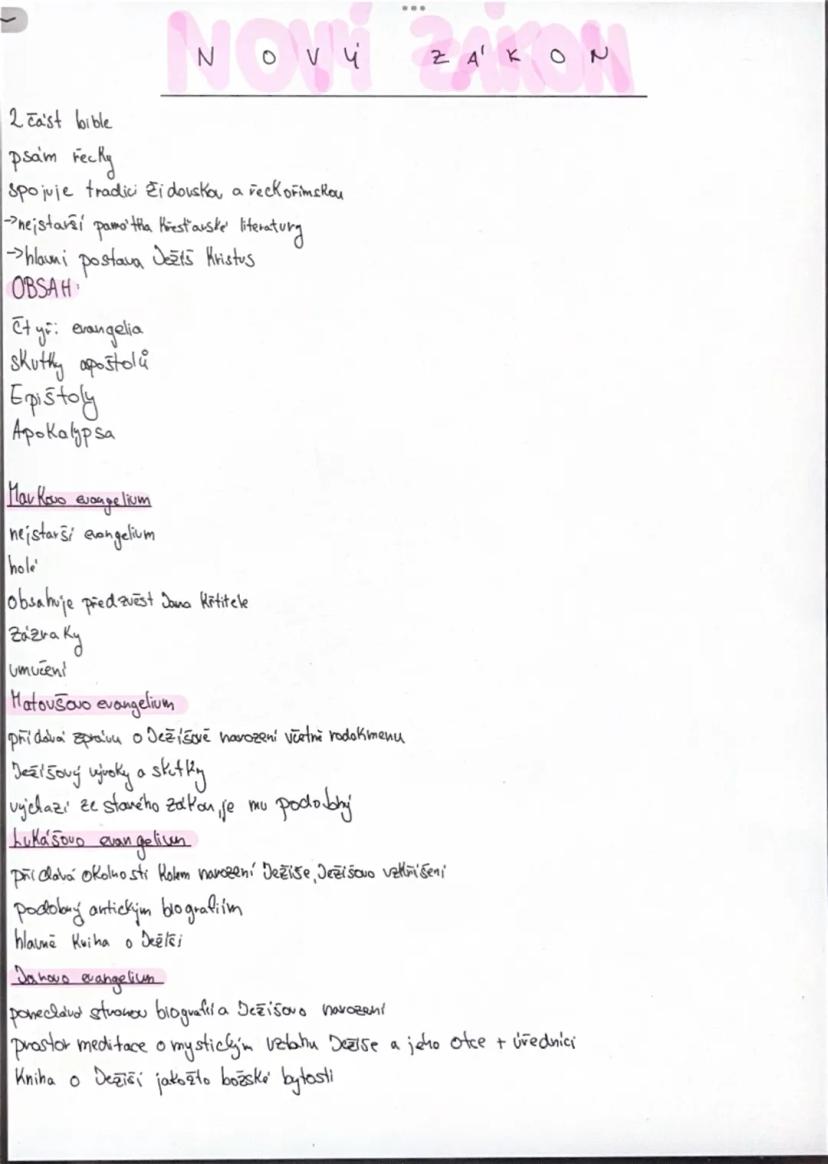 NOVÝ ZÁKON
2 část bible
psám řecky
spojuje tradici židovskou a řeckořímskou
→nejstarší památka křesťanské literatury
→hlavní postava Ježíš Kristus
OBSAH:
čtyři evangelia
skutky apoštolů
Epištoly
Apokalypsa
Markovo evangelium
nejstarší evangelium
holé
obsahuje předzvěst Jana Křtitele
zázraky
umučení
Matoušovo evangelium
přidává zprávu o Ježíšově narození včetně rodokmenu
Ježíšovy výroky a skutky
vychází ze starého zákon, je mu podobný
Lukášovo evangelium
přidává okolnosti kolem narození Ježíše, Ježíšovo vzkříšení
podobný antickým biografiím
hlavně kniha o Ježíši
Janovo evangelium
ponechává stranou biografii a Ježíšovo narození
prostor meditace o mystickým vztahu Ježíše a jeho otce + úředníci
kniha o Ježíši jakožto božské bytosti